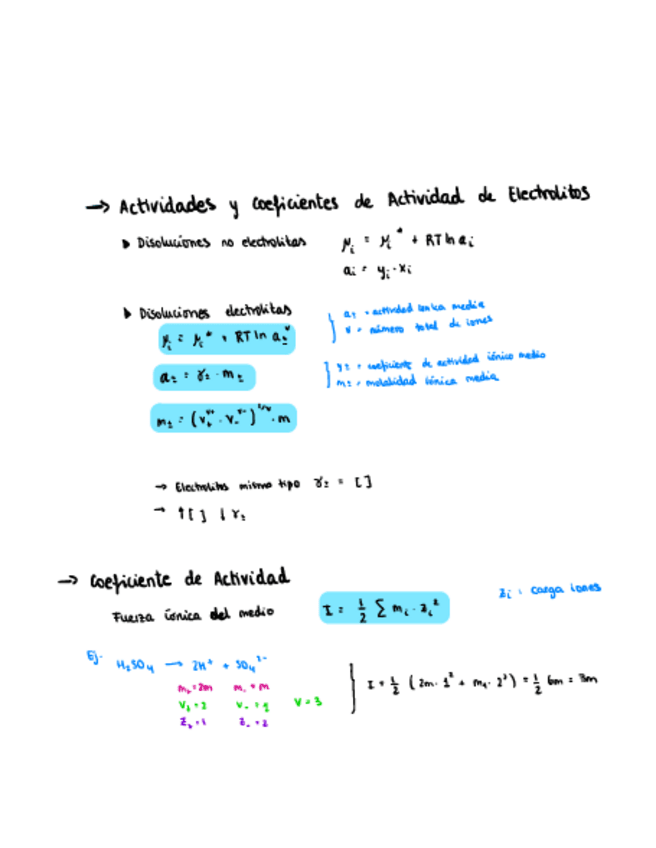 → Actividades y coeficientes de Actividad de Electrolitos
▶ Disoluciones no electrolitas μᵢ = μᵢ* + RT ln aᵢ
aᵢ = yᵢ · xᵢ
▶ Disoluciones electrolitas
μᵢ = μᵢ* + RT ln a±ᵛ
a± = actividad iónica media
ν = número total de iones
a± = γ± · m±
γ± = coeficiente de actividad iónico medio
m± = molalidad iónica media
m± = (ν₊^ν⁺ · ν₋^ν⁻)^1/ν · m
→ Electrolitos mismo tipo γ± = [ ]
→ ↑[ ] ↓γ±
→ Coeficiente de Actividad
Fuerza iónica del medio I = 1/2 Σ mᵢ · zᵢ² zᵢ : carga iones
Ej. H₂SO₄ → 2H⁺ + SO₄²⁻
m₊ = 2m m₋ = m
ν₊ = 2 ν₋ = 1 ν = 3
z₊ = 1 z₋ = 2
I = 1/2 (2m · 1² + m · 2²) = 1/2 6m = 3m